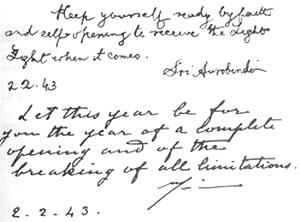 Keep yourself ready by faith
and self-opening to receive the Light
Light when it comes.
Sri Aurobindo
2 2. 43
Let this year be for
you the year of a complete
opening and of the
breaking of all limitations.
2 . 2 . 43 .